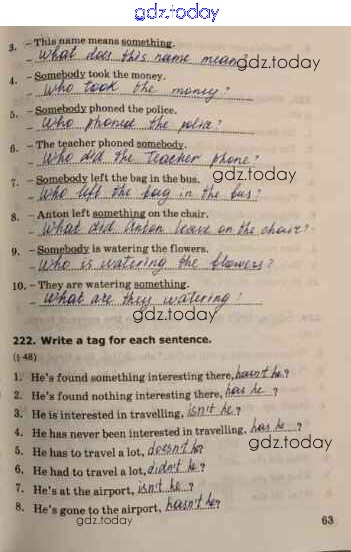 gdz.today
3. – This name means something.
– What does this name mean?
gdz.today
4. – Somebody took the money.
– Who took the money?
5. – Somebody phoned the police.
– Who phoned the police?
gdz.today
6. – The teacher phoned somebody.
– Who did the teacher phone?
gdz.today
7. – Somebody left the bag in the bus.
– Who left the bag in the bus?
8. – Anton left something on the chair.
– What did Anton leave on the chair?
gdz.today
9. – Somebody is watering the flowers.
– Who is watering the flowers?
10. – They are watering something.
– What are they watering?
gdz.today
222. Write a tag for each sentence.
(§ 48)
1. He's found something interesting there, hasn't he?
2. He's found nothing interesting there, has he?
gdz.today
3. He is interested in travelling, isn't he?
4. He has never been interested in travelling, has he?
gdz.today
5. He has to travel a lot, doesn't he?
6. He had to travel a lot, didn't he?
7. He's at the airport, isn't he?
8. He's gone to the airport, hasn't he?
63
gdz.today